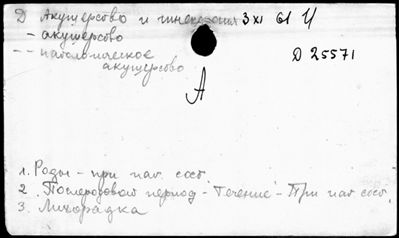 Д Акушерство и гинекология 3 XI 61 Ч
- акушерство
-- патологическое
акушерство
D 25571
А
1. Роды - при пат. сост.
2. Послеродовой период - Течение - При пат. сост.
3. Лихорадка